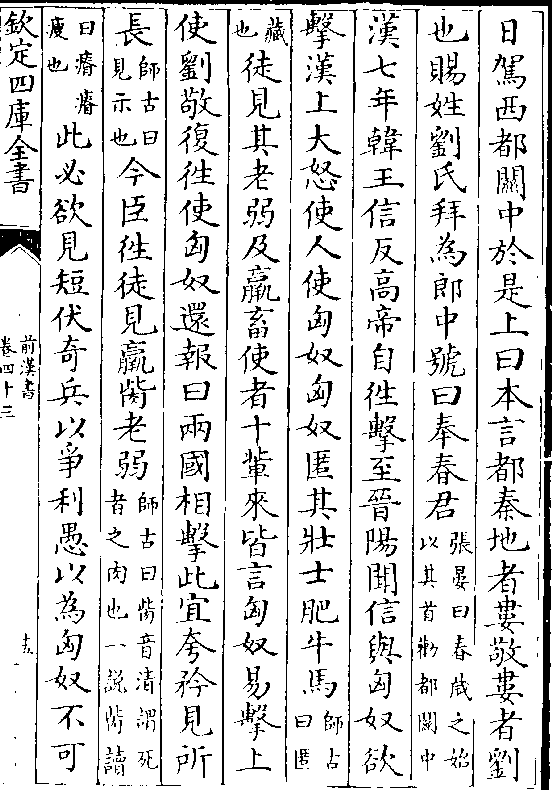 日駕西都關中於是上曰本言都秦地者婁敬婁者劉
也賜姓劉氏拜為郎中號曰奉春君張晏曰春歲之始以其首勸都關中
漢七年韓王信反高帝自徃擊至晉陽聞信與匈奴欲
擊漢上大怒使人使匈奴匈奴匿其壯士肥牛馬師古曰匿
藏也徒見其老弱及羸畜使者十輩來皆言匈奴易擊上
使劉敬復徃使匈奴還報曰兩國相擊此宜夸矜見所
長師古曰見示也今臣徃徒見羸胔老弱師古曰胔音漬謂死者之肉也一說胔讀
曰瘠瘠瘦也此必欲見短伏奇兵以爭利愚以為匈奴不可
欽定四庫全書
前漢書
卷四十三
十五